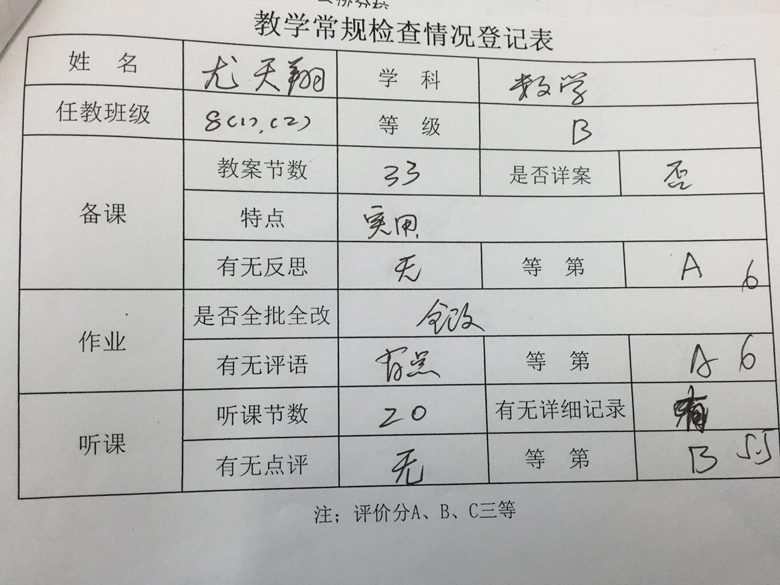 教学常规检查情况登记表
姓 名 尤天翔 学 科 数学
任教班级 8(1),(2) 等 级 B
备课 教案节数 33 是否详案 否
特点 实用
有无反思 无 等 第 A 6
作业 是否全批全改 全改
有无评语 有些 等 第 A 6
听课 听课节数 20 有无详细记录 有
有无点评 无 等 第 B 5.5
注；评价分A、B、C三等